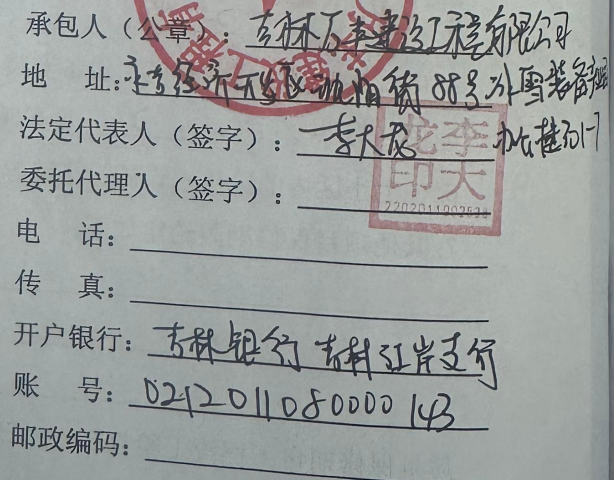 承包人（公章）：吉林万丰建设工程有限公司
地 址：永吉经济开发区沈阳街88号冰雪装备产业园
办公楼301-7
法定代表人（签字）：李大龙
李大龙印
2202011002538
委托代理人（签字）：
电 话：
传 真：
开户银行：吉林银行吉林江岸支行
账 号：0212011080000143
邮政编码：